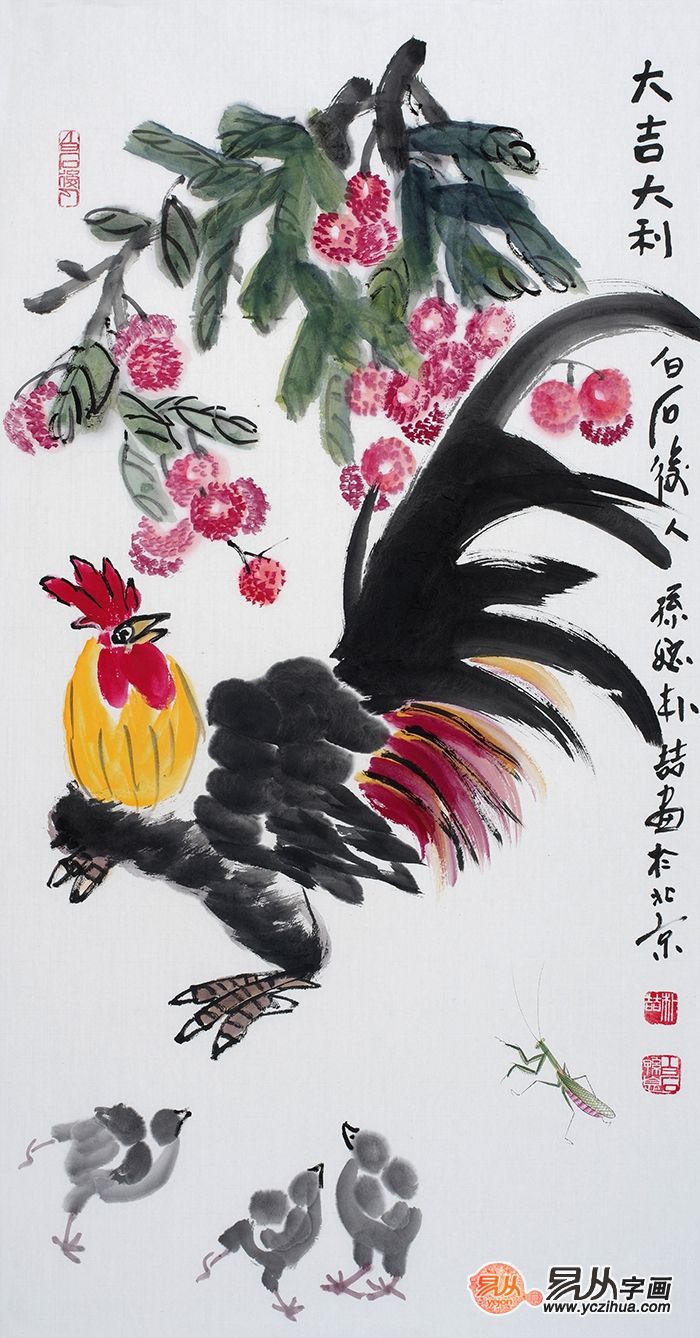 大吉大利
白石後人 孫媳朴喆畫於北京
朴喆
易从
易从字画
www.yczihua.com